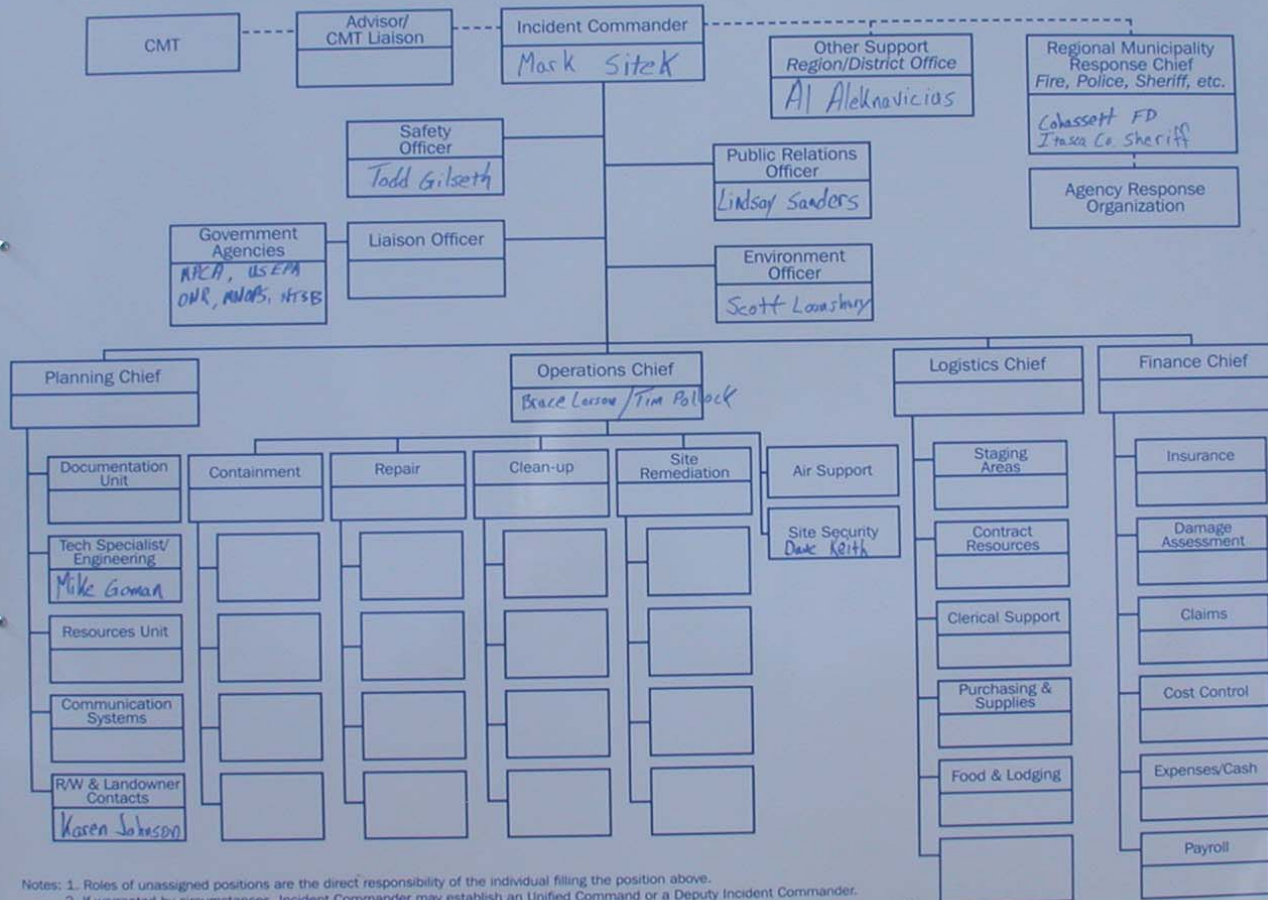 CMT
Advisor/
CMT Liaison
Incident Commander
Mark Sitek
Other Support
Region/District Office
Al Aleknavicius
Regional Municipality
Response Chief
Fire, Police, Sheriff, etc.
Cohassett FD
Itasca Co. Sheriff
Agency Response
Organization
Safety
Officer
Todd Gilseth
Public Relations
Officer
Lindsay Sanders
Government
Agencies
MPCA, USEPA
DNR, MNOPS, NTSB
Liaison Officer
Environment
Officer
Scott Lounsbury
Planning Chief
Operations Chief
Bruce Larson/Tim Pollock
Logistics Chief
Finance Chief
Documentation
Unit
Tech Specialist/
Engineering
Mike Goman
Resources Unit
Communication
Systems
R/W & Landowner
Contacts
Karen Johnson
Containment
Repair
Clean-up
Site
Remediation
Air Support
Site Security
Dave Keith
Staging
Areas
Contract
Resources
Clerical Support
Purchasing &
Supplies
Food & Lodging
Insurance
Damage
Assessment
Claims
Cost Control
Expenses/Cash
Payroll
Notes: 1. Roles of unassigned positions are the direct responsibility of the individual filling the position above.
2. If warranted by circumstances, Incident Commander may establish an Unified Command or a Deputy Incident Commander.